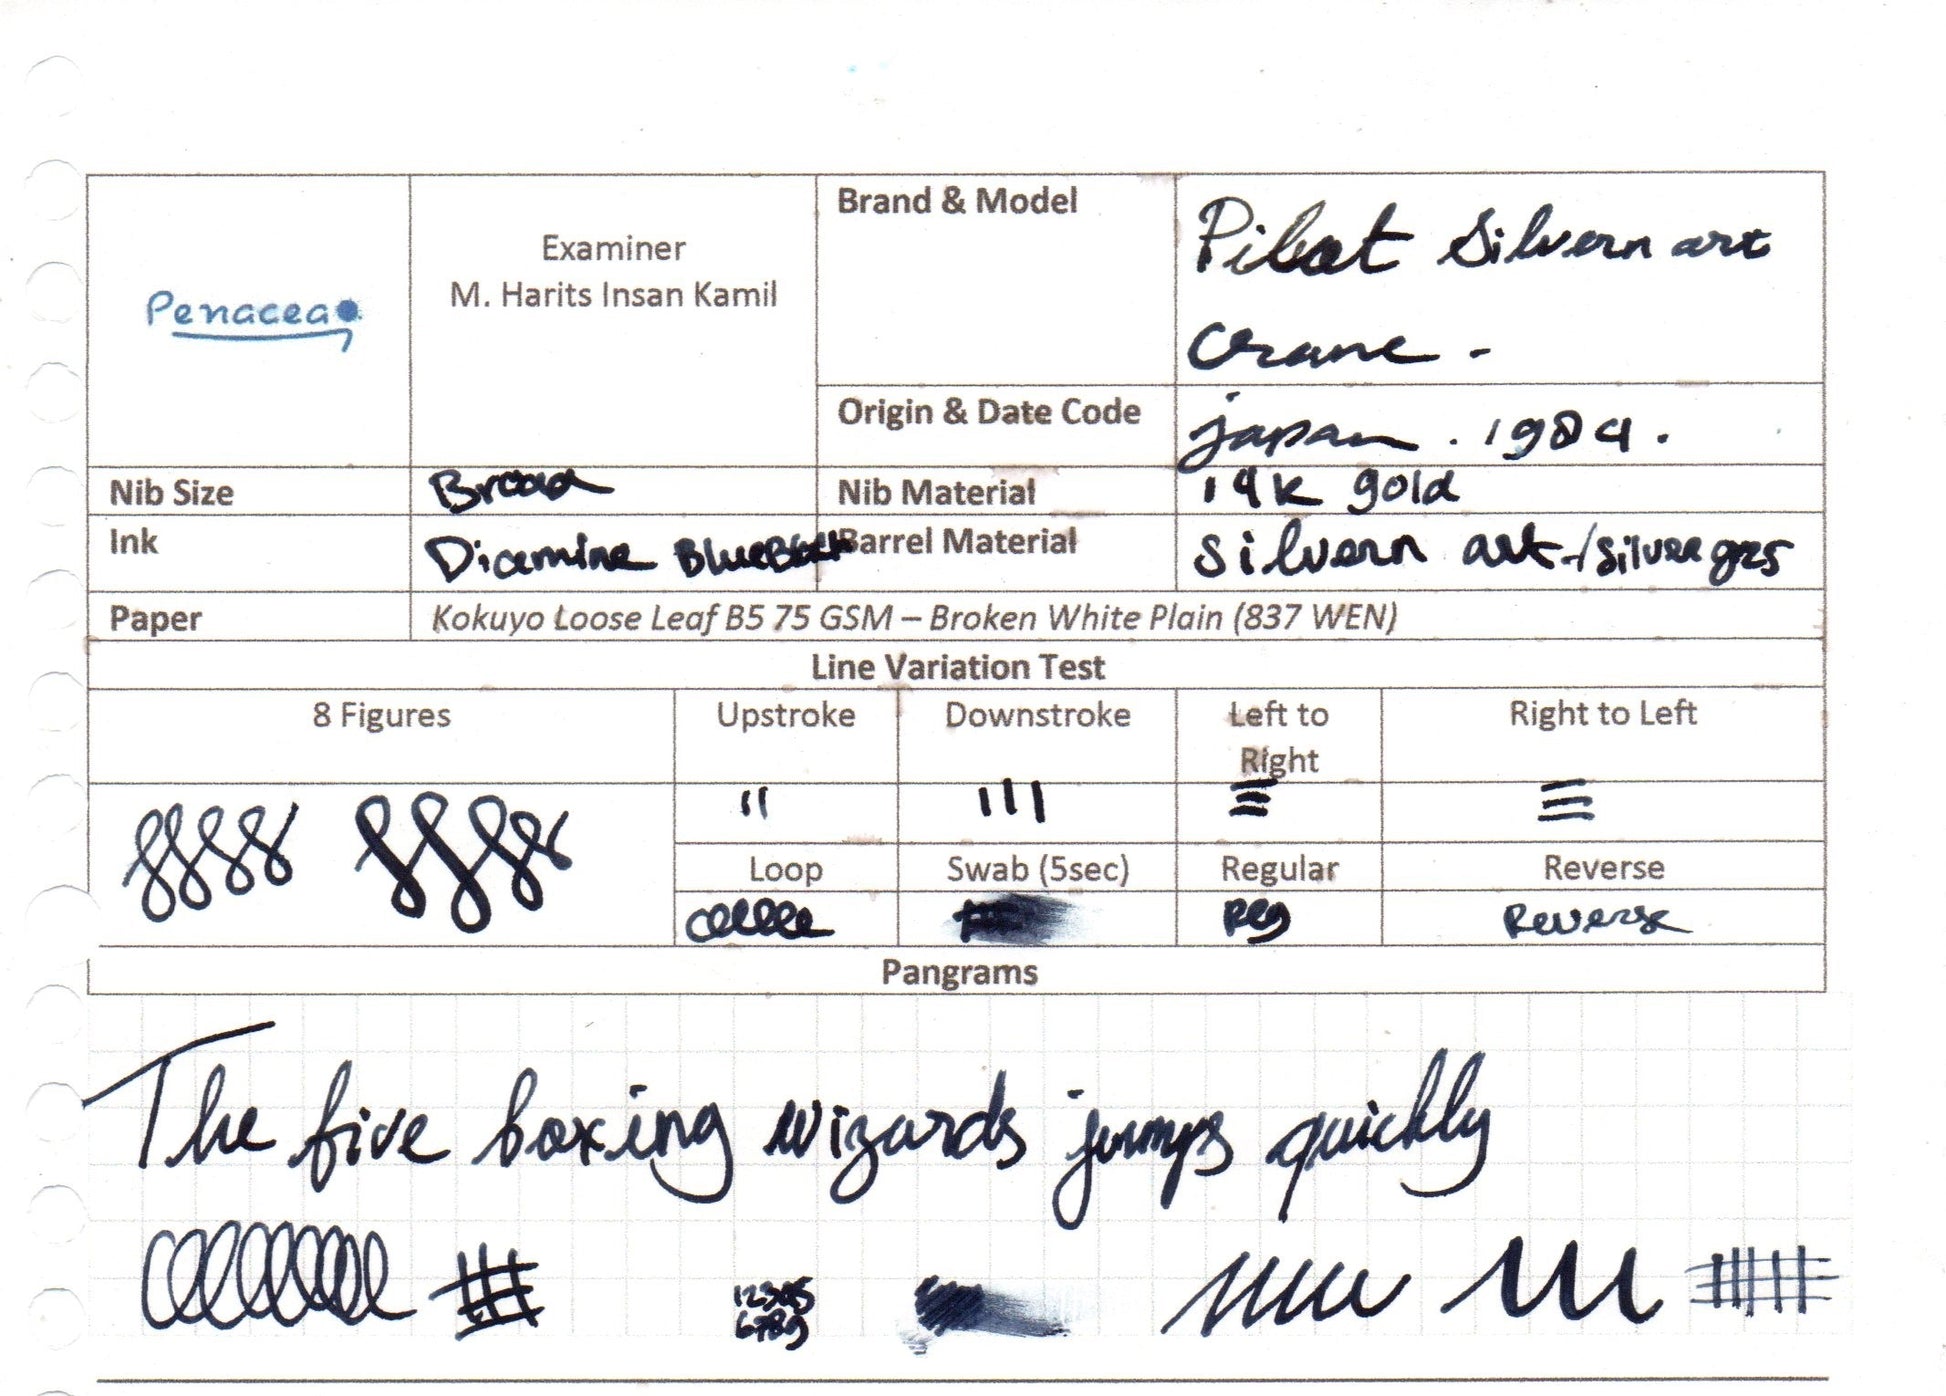 Penacea
Examiner
M. Harits Insan Kamil
Brand & Model
Pilot Silvern art
Crane -
Origin & Date Code
japan . 1984 .
Nib Size
Broad
Nib Material
14K gold
Ink
Diamine BlueBlack
Barrel Material
Silvern art /
Paper
Kokuyo Loose Leaf B5 75 GSM – Broken White Plain (837 WEN)
Line Variation Test
8 Figures
Upstroke
Downstroke
Left to
Right
Right to Left
Loop
Swab (5sec)
Regular
Reverse
Reg
Reverse
Pangrams
The five boxing wizards jumps quickly
12345
6789